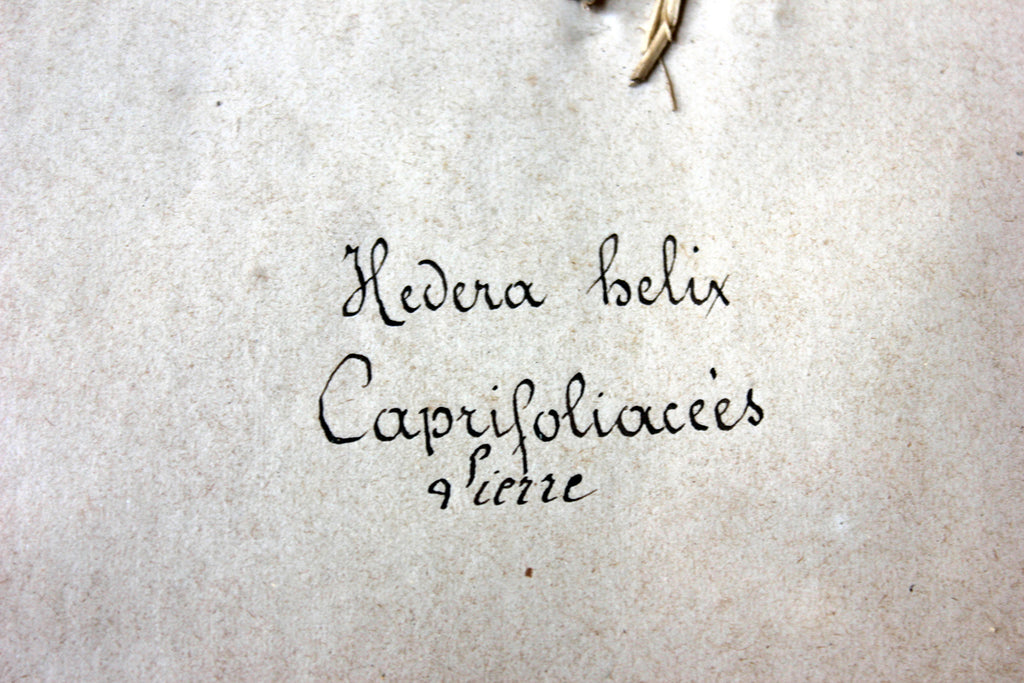 Hedera helix
Caprifoliacées
Pierre